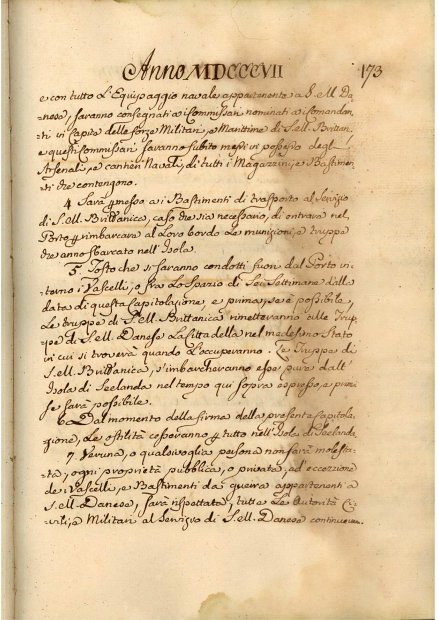 Anno MDCCCVII 173
e con tutto L'Equipaggio navale appartenente a S. M. Da-
nese, saranno consegnati a i Commissari nominati a i Comandan-
ti in Capite delle forze Militari, e Marittime di S. M. Brittan.
e questi Commissari saranno subito messi in possesso degl'
Arsenali, e cantieri Navali, di tutti i Magazzini, e Bastimen-
ti che contengono.
4. Sarà permesso a i Bastimenti di trasporto al Servizio
di S. M. Brittanica, caso che sia necessario, di entrare nel
Porto per imbarcare al Loro bordo Le munizioni, e truppe
che anno sbarcato nell'Isola.
5. Tosto che si saranno condotti fuori dal Porto in-
terno i Vascelli, e fra Lo Spazio di Sei Settimane dalla
data di questa Capitolazione, e prima, se è possibile,
Le truppe di S. M. Brittanica rimetteranno alle Trup-
pe di S. M. Danese La Cittadella nel medesimo Stato
in cui si troverà quando L'occuperanno. Le Truppe di
S. M. Brittanica, s'imbarcheranno esse pure dall'
Isola di Seelanda nel tempo qui sopra espresso, e prima
se sarà possibile.
6. Dal momento della firma della presente Capitola-
zione, Le ostilità cesseranno per tutto nell'Isola di Seelanda.
7. Veruna, o qualsivoglia persona non sarà molesta-
ta, ogni proprietà pubblica, o privata, ad eccezzione
de i Vascelli, e Bastimenti da guerra appartenenti a
S. M. Danese, sarà rispettata, tutte Le Autorità Ci-
vili, e Militari al Servizio di S. M. Danese continueran-